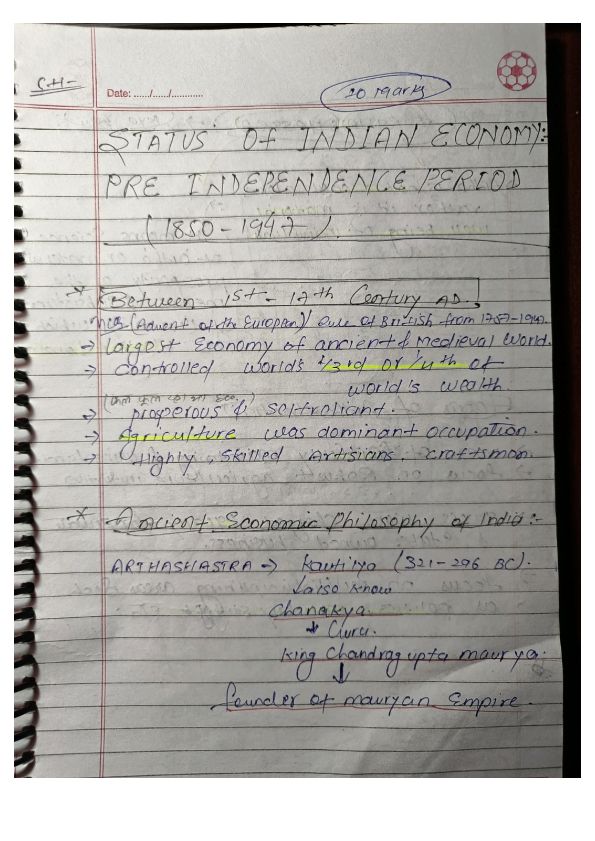 CH-
Date: ....../....../...........
20 Marks
STATUS OF INDIAN ECONOMY:-
PRE INDEPENDENCE PERIOD
(1850-1947).
* Between 1st - 17th Century AD.:
(Advent of the European) rule of British from 1757-1947.
→ largest Economy of ancient & Medieval world.
→ controlled world's 1/3rd or 1/4th of
world's wealth.
→ prosperous & selfreliant.
→ Agriculture was dominant occupation.
→ Highly skilled Artisians, craftsman.
* Ancient Economic Philosophy of India:-
ARTHASHASTRA → Kautilya (321-296 BC).
↓ also know
Chanakya.
↓ Guru.
King Chandragupta maurya.
↓
founder of mauryan Empire.